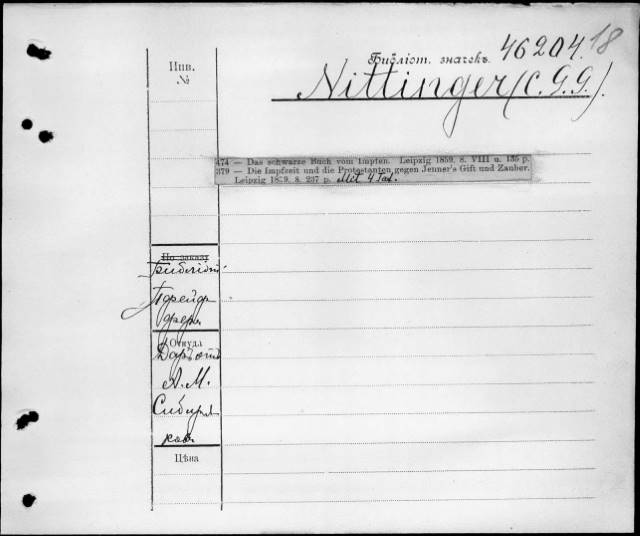 46204.18
Библіот. значекъ.
Инв.
№
Nittinger (C. G. G.).
474 — Das schwarze Buch vom Impfen. Leipzig 1859. 8. VIII u. 135 p.
379 — Die Impfzeit und die Protestanten gegen Jenner's Gift und Zauber.
Leipzig 1859. 8. 237 p. Mit 4 Taf.
По заказу
Пфейф
фера
Откуда
Даръ отъ
А. М.
Сибиря
кова
Цѣна